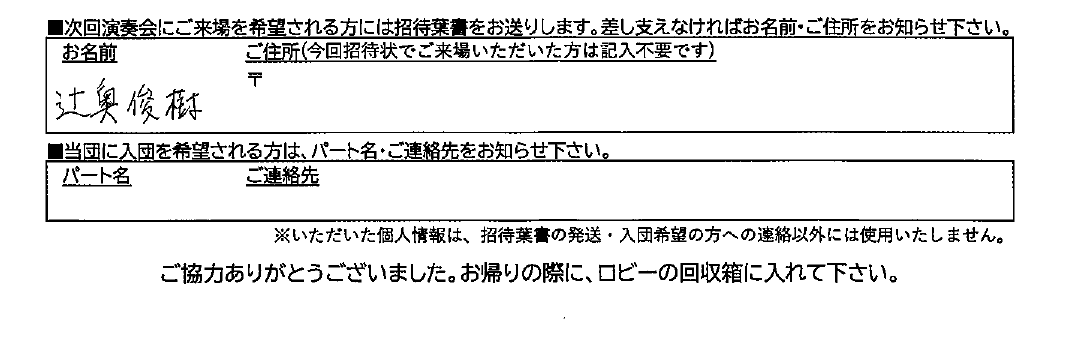 ■次回演奏会にご来場を希望される方には招待葉書をお送りします。差し支えなければお名前・ご住所をお知らせ下さい。
お名前 ご住所(今回招待状でご来場いただいた方は記入不要です)
〒
辻奥俊樹
■当団に入団を希望される方は、パート名・ご連絡先をお知らせ下さい。
パート名 ご連絡先
※いただいた個人情報は、招待葉書の発送・入団希望の方への連絡以外には使用いたしません。
ご協力ありがとうございました。お帰りの際に、ロビーの回収箱に入れて下さい。